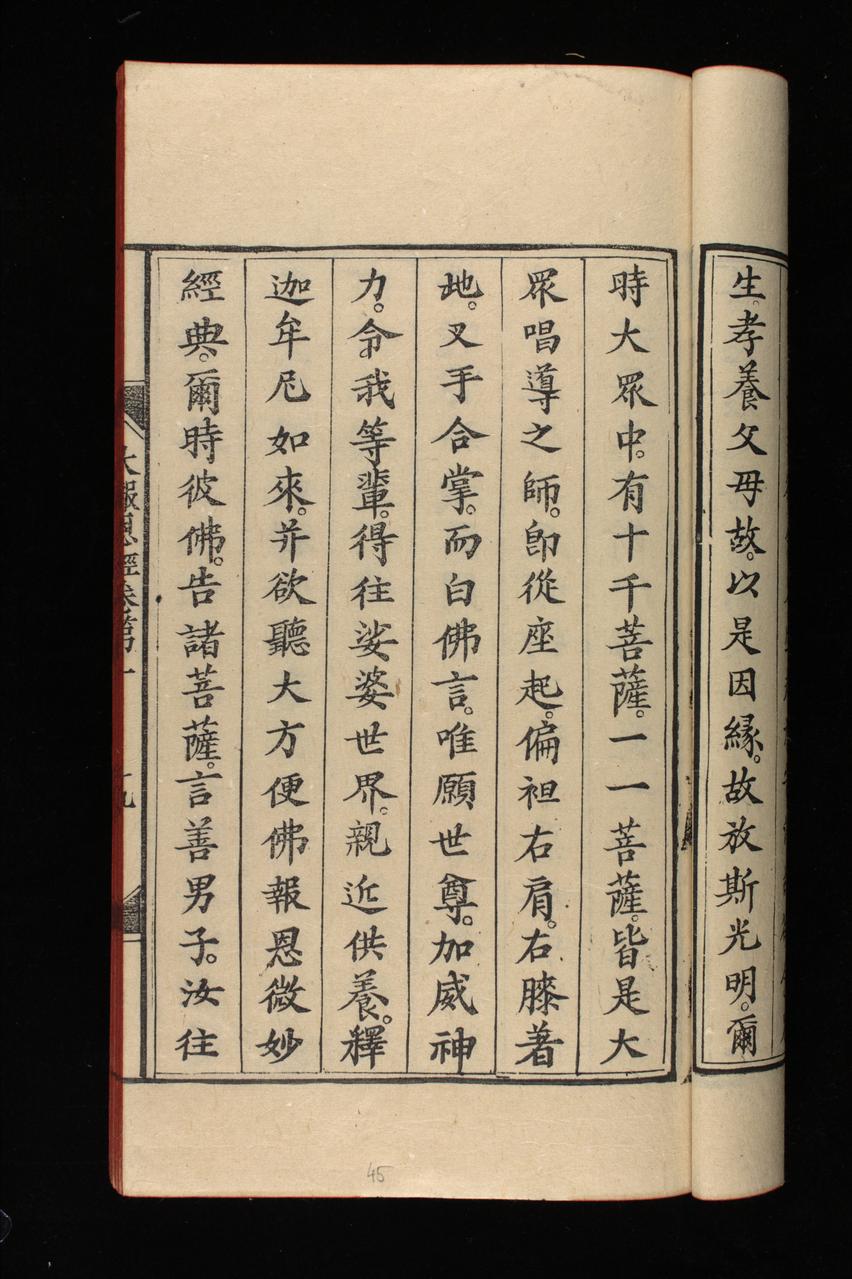 生。孝養父母故。以是因緣。故放斯光明。爾
時大眾中。有十千菩薩。一一菩薩。皆是大
眾唱導之師。即從座起。偏袒右肩。右膝著
地。叉手合掌。而白佛言。唯願世尊。加威神
力。令我等輩。得往娑婆世界。親近供養。釋
迦牟尼如來。并欲聽大方便佛報恩微妙
經典。爾時彼佛。告諸菩薩。言善男子。汝往
大報恩經卷第一 九
45